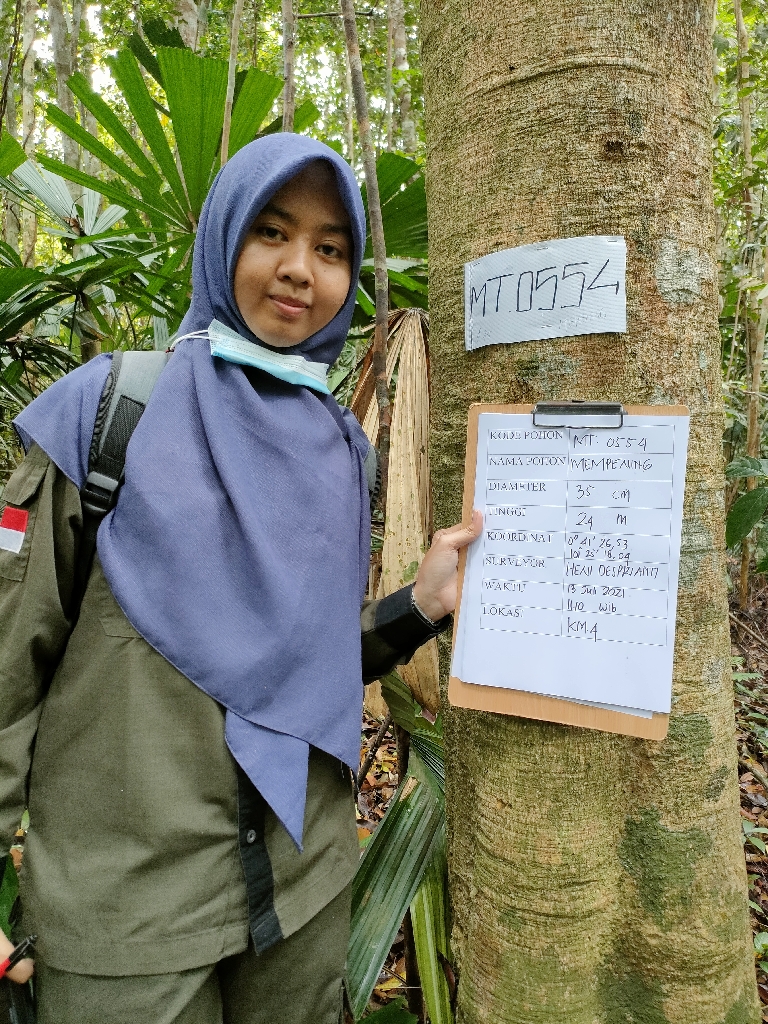 MT.0554
KODE POHON MT. 0554
NAMA POHON MEMPENING
DIAMETER 35 cm
TINGGI 24 m
KOORDINAT 0° 41' 26,53
101° 25' 18,04
SURVEYOR HENI DESPRIANTI
WAKTU 13 Juli 2021
11.10 wib
LOKASI KM.4